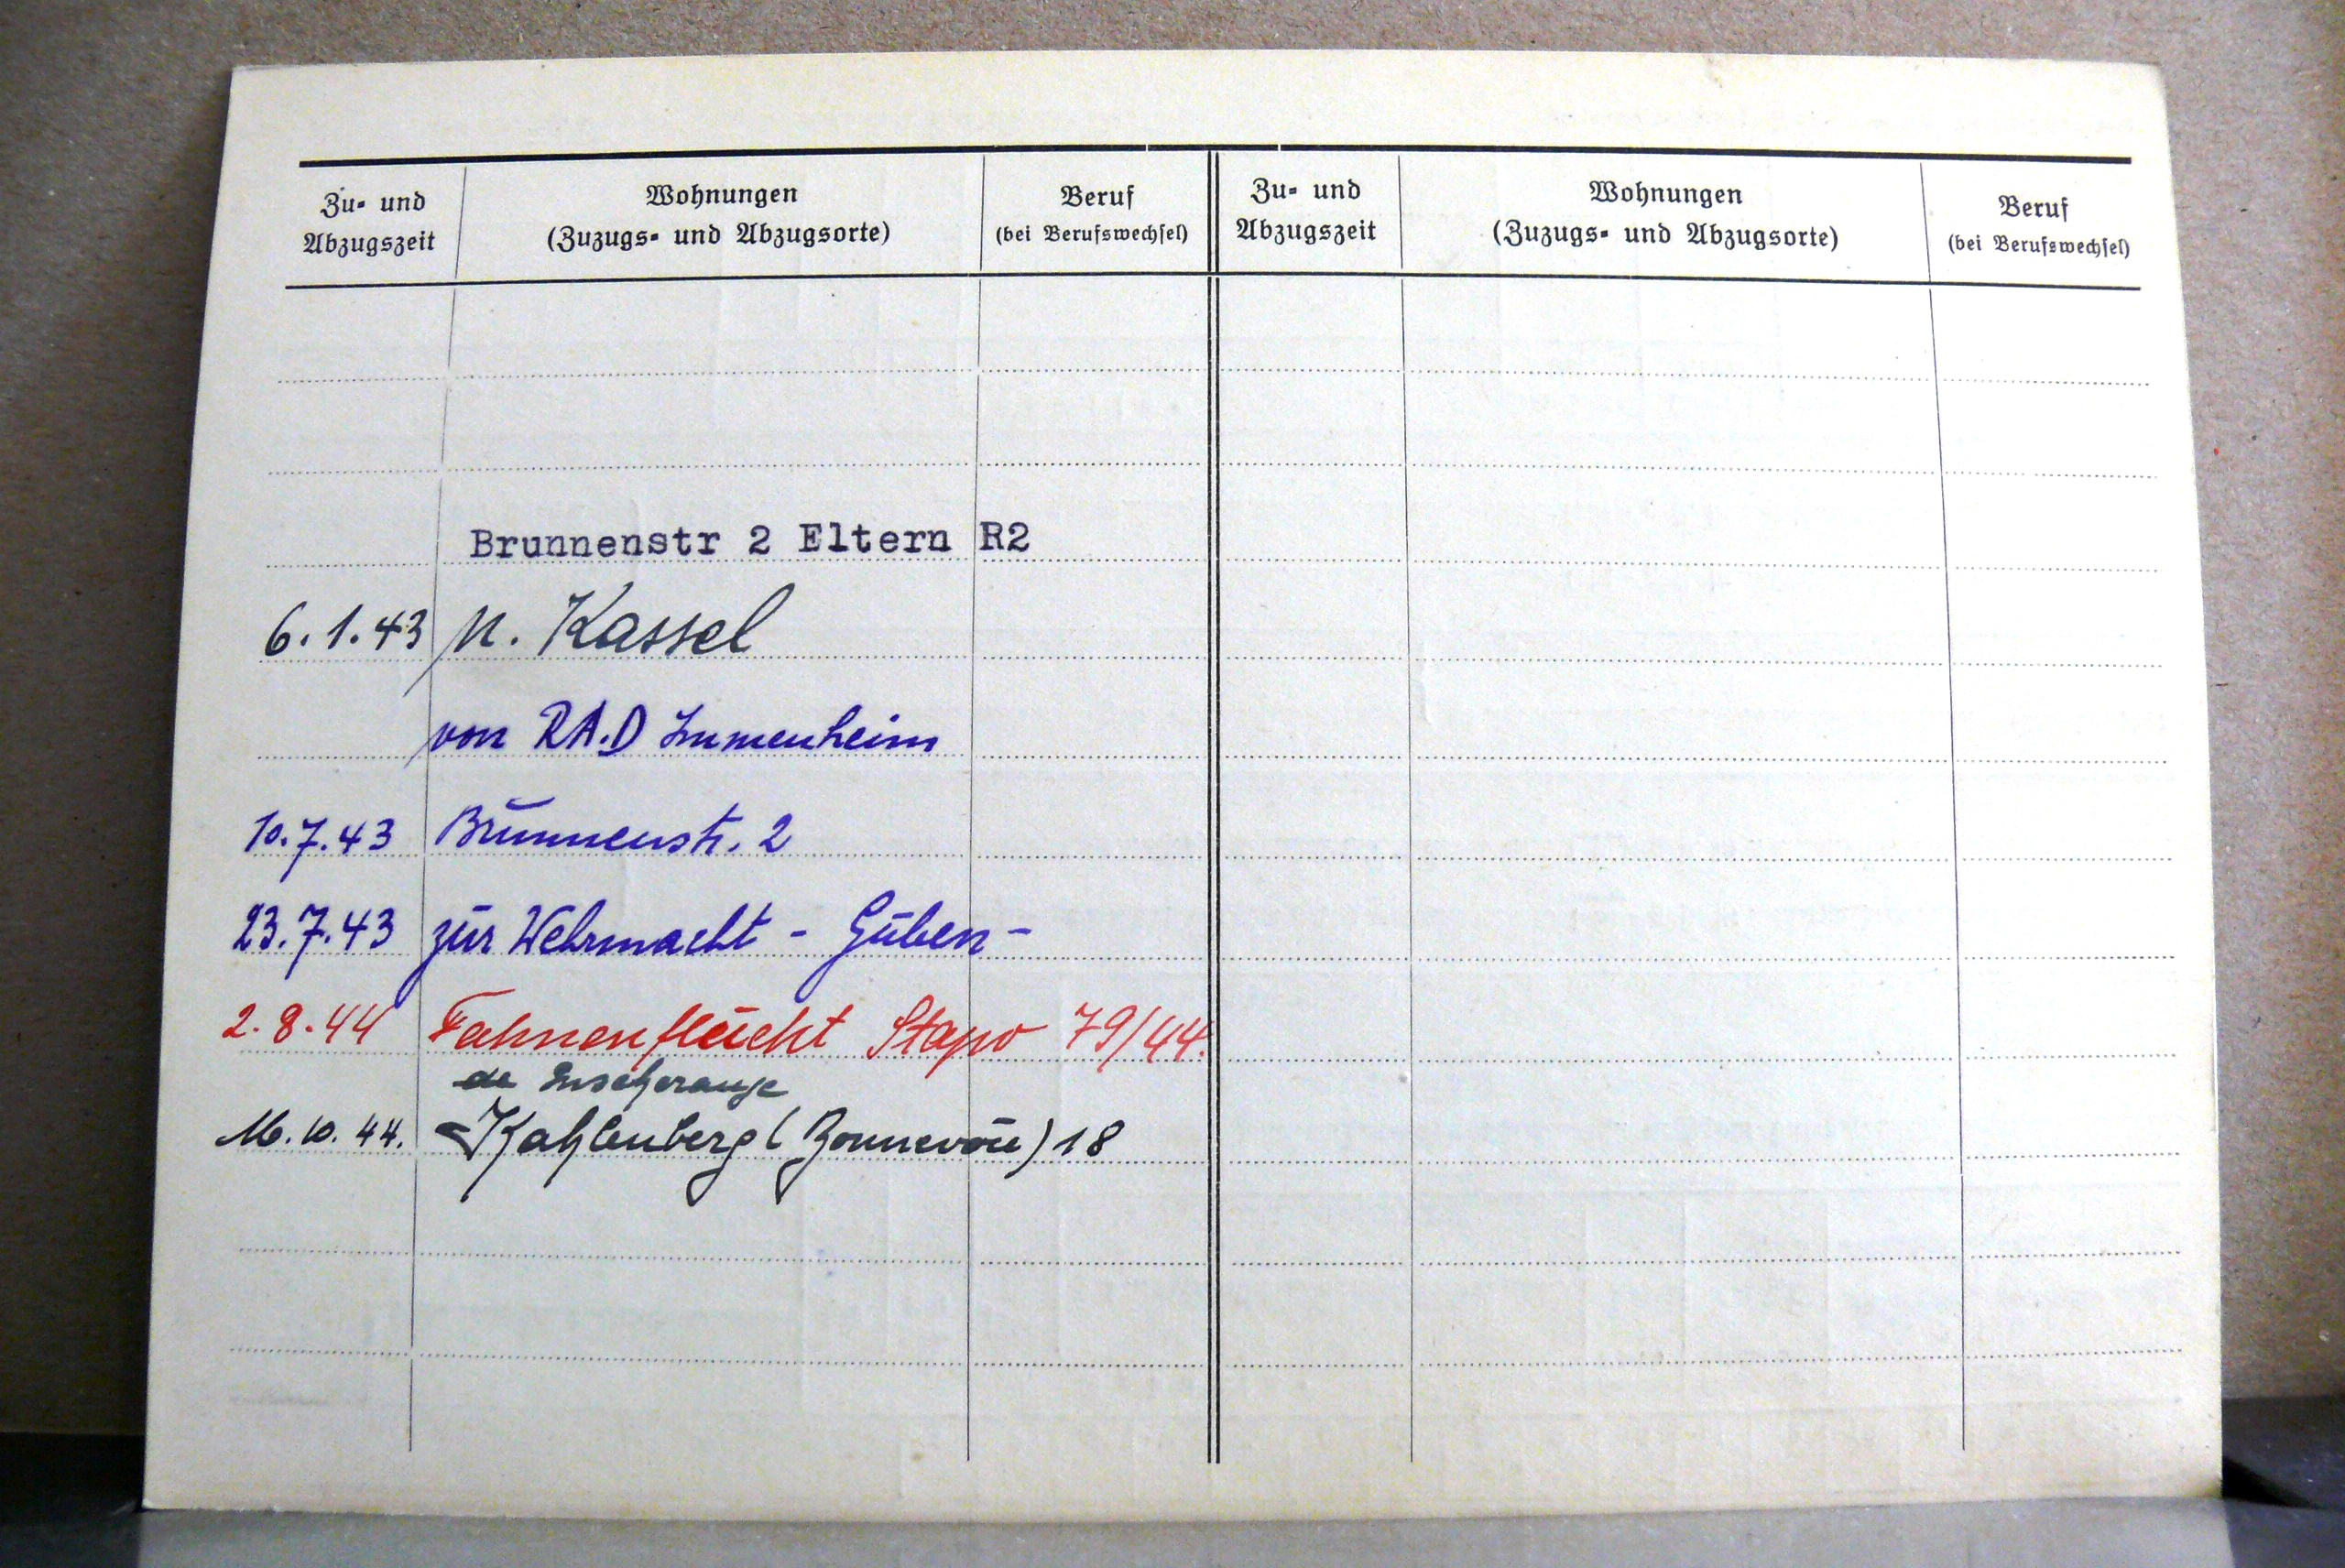 Zu- und Abzugszeit
Wohnungen (Zuzugs- und Abzugsorte)
Beruf (bei Berufswechsel)
Zu- und Abzugszeit
Wohnungen (Zuzugs- und Abzugsorte)
Beruf (bei Berufswechsel)
Brunnenstr 2 Eltern R2
6.1.43 n. Kassel
von RA.D Immenheim
10.7.43 Brunnenstr. 2
23.7.43 zur Wehrmacht - Guben -
2.8.44 Fahnenflucht Stapo 79/44.
de Enscherange
16.10.44. Kahlenberg (Bonnevoie) 18